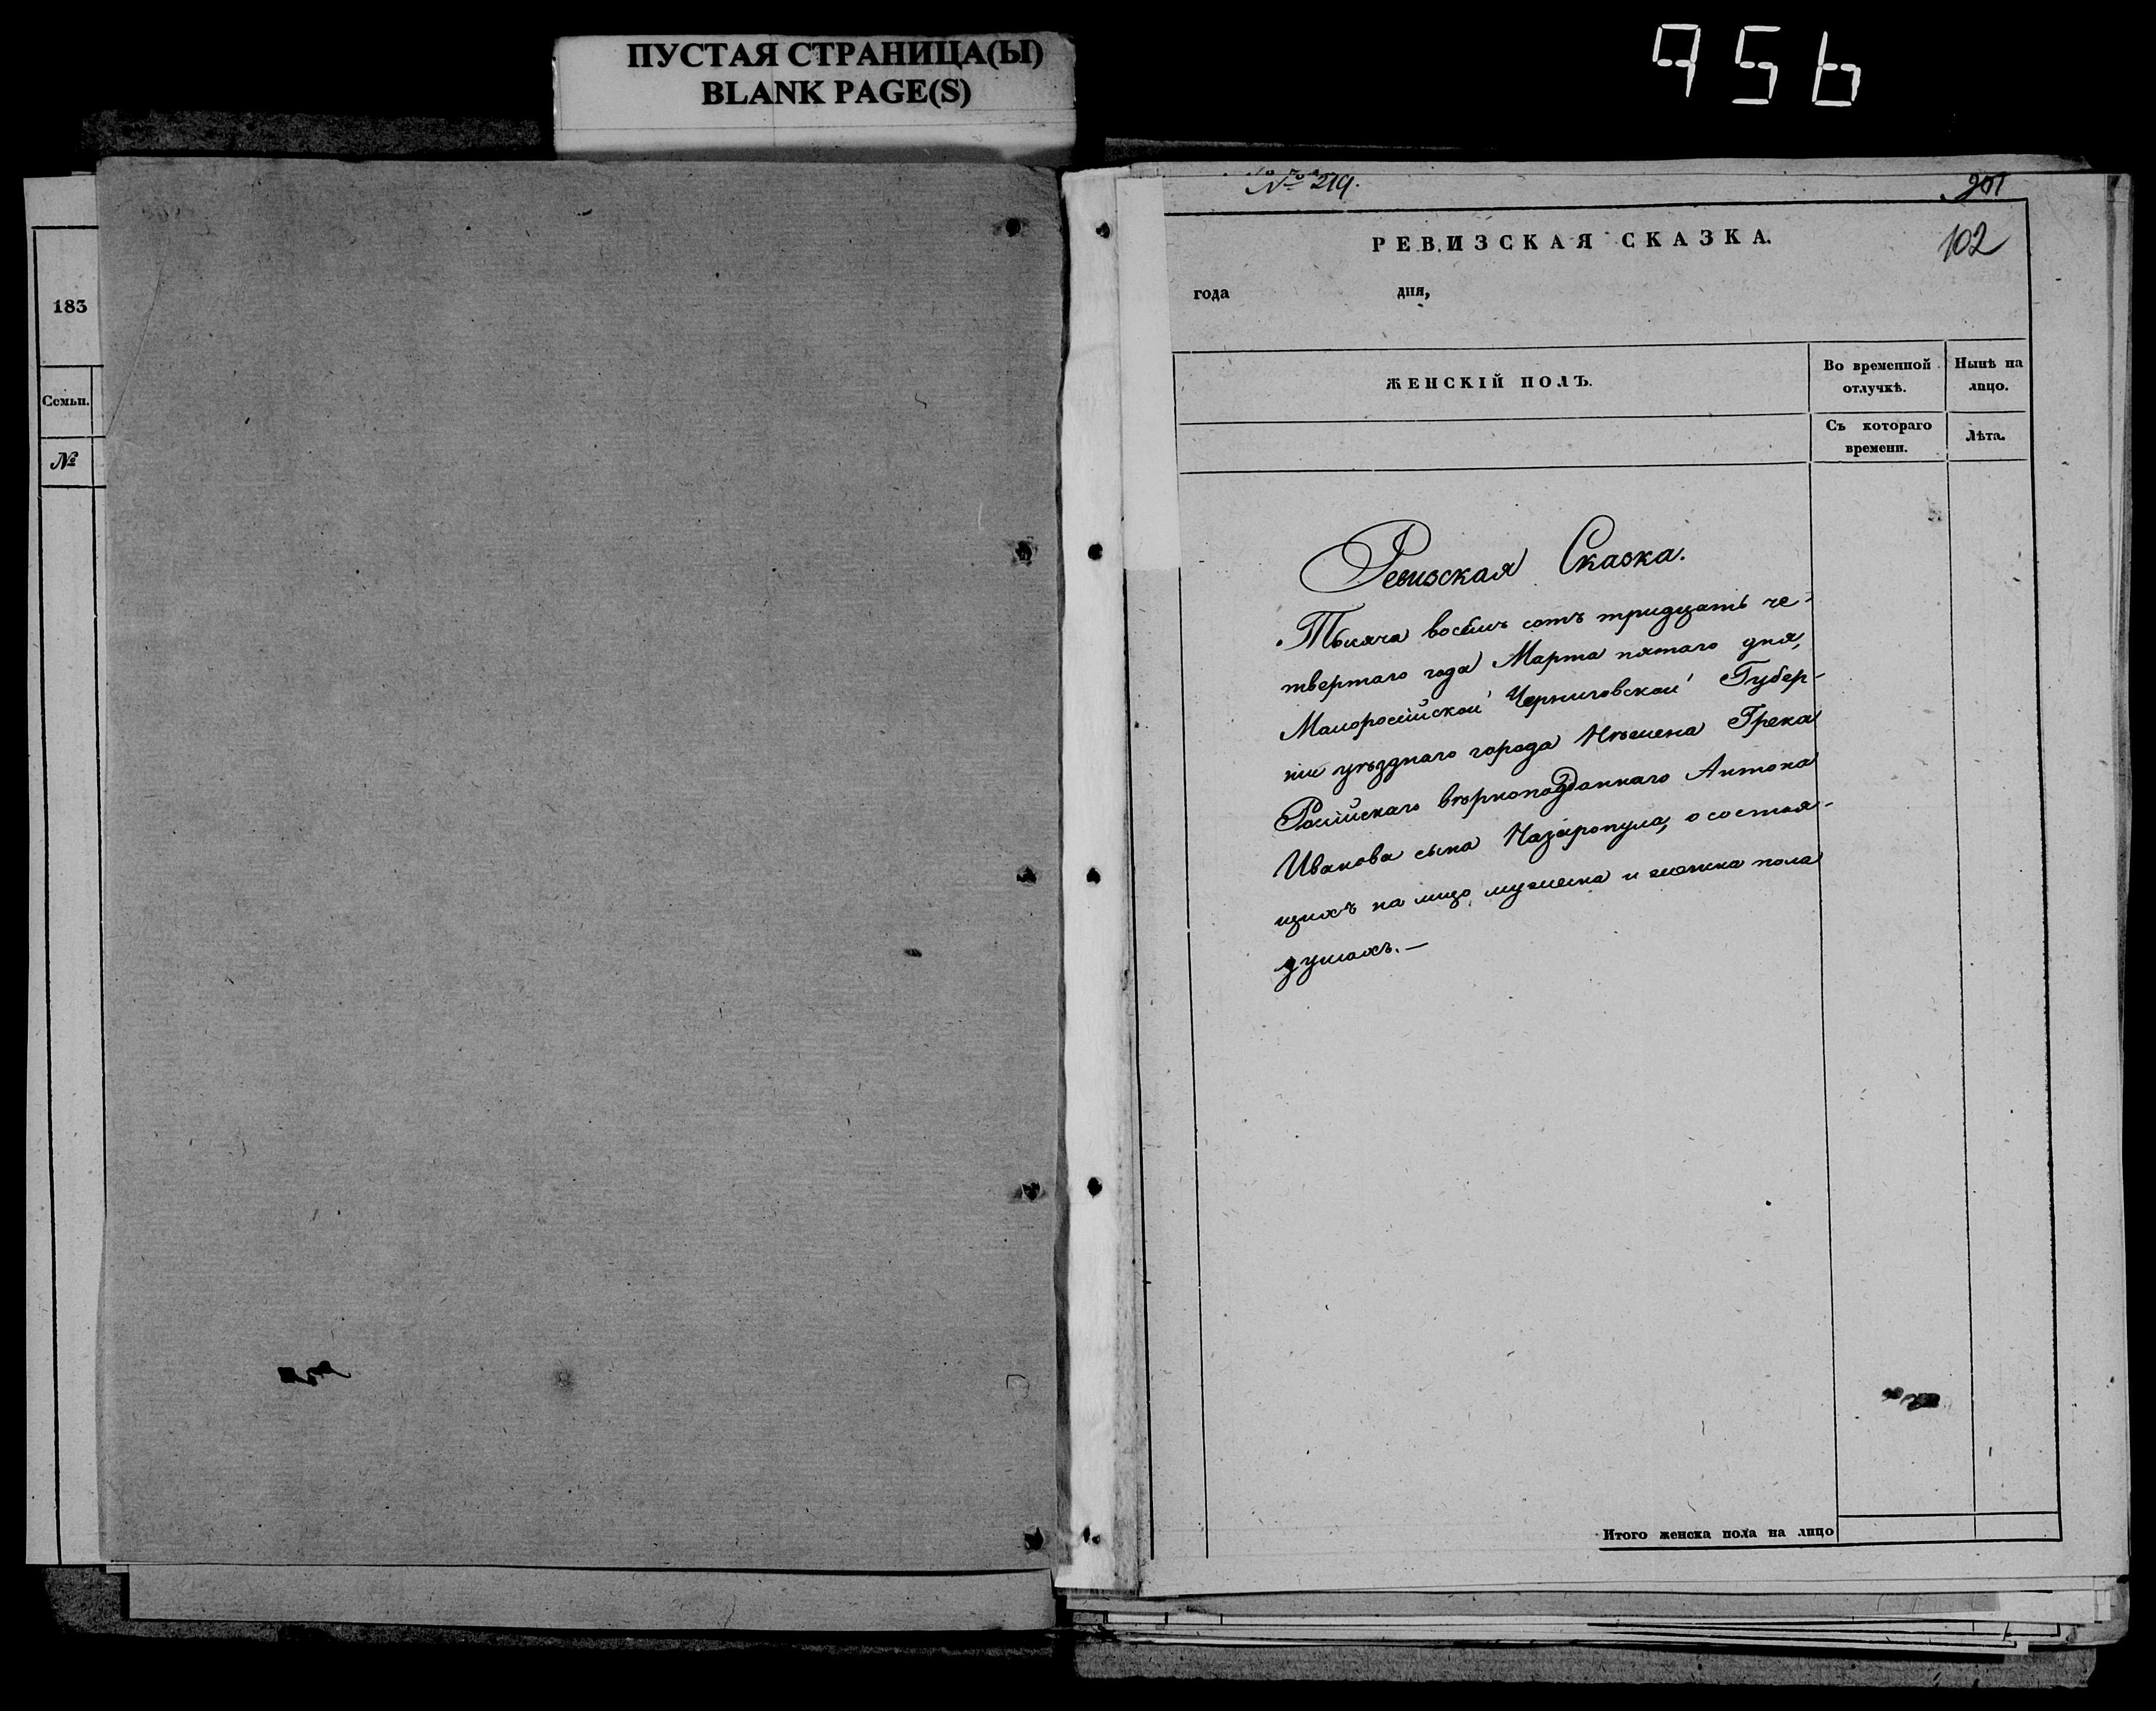 ПУСТАЯ СТРАНИЦА(Ы)
BLANK PAGE(S)
956
183
Семьи.
№
№ 219.
102
РЕВИЗСКАЯ СКАЗКА.
года дня,
ЖЕНСКІЙ ПОЛЪ.
Во временной отлучкѣ.
Нынѣ на лицо.
Съ котораго времени.
Лѣта.
Ревизская Сказка.
Тысяча восемь сотъ тридцать че-
твертаго года Марта пятаго дня,
Малоросійской Черниговской Губер-
ніи уѣзднаго города Нѣжина Грека
Російскаго вѣрноподданнаго Антона
Иванова сына Назаропула, о состоя-
щихъ на лицо мужеска и женска пола
душахъ.—
Итого женска пола на лицо